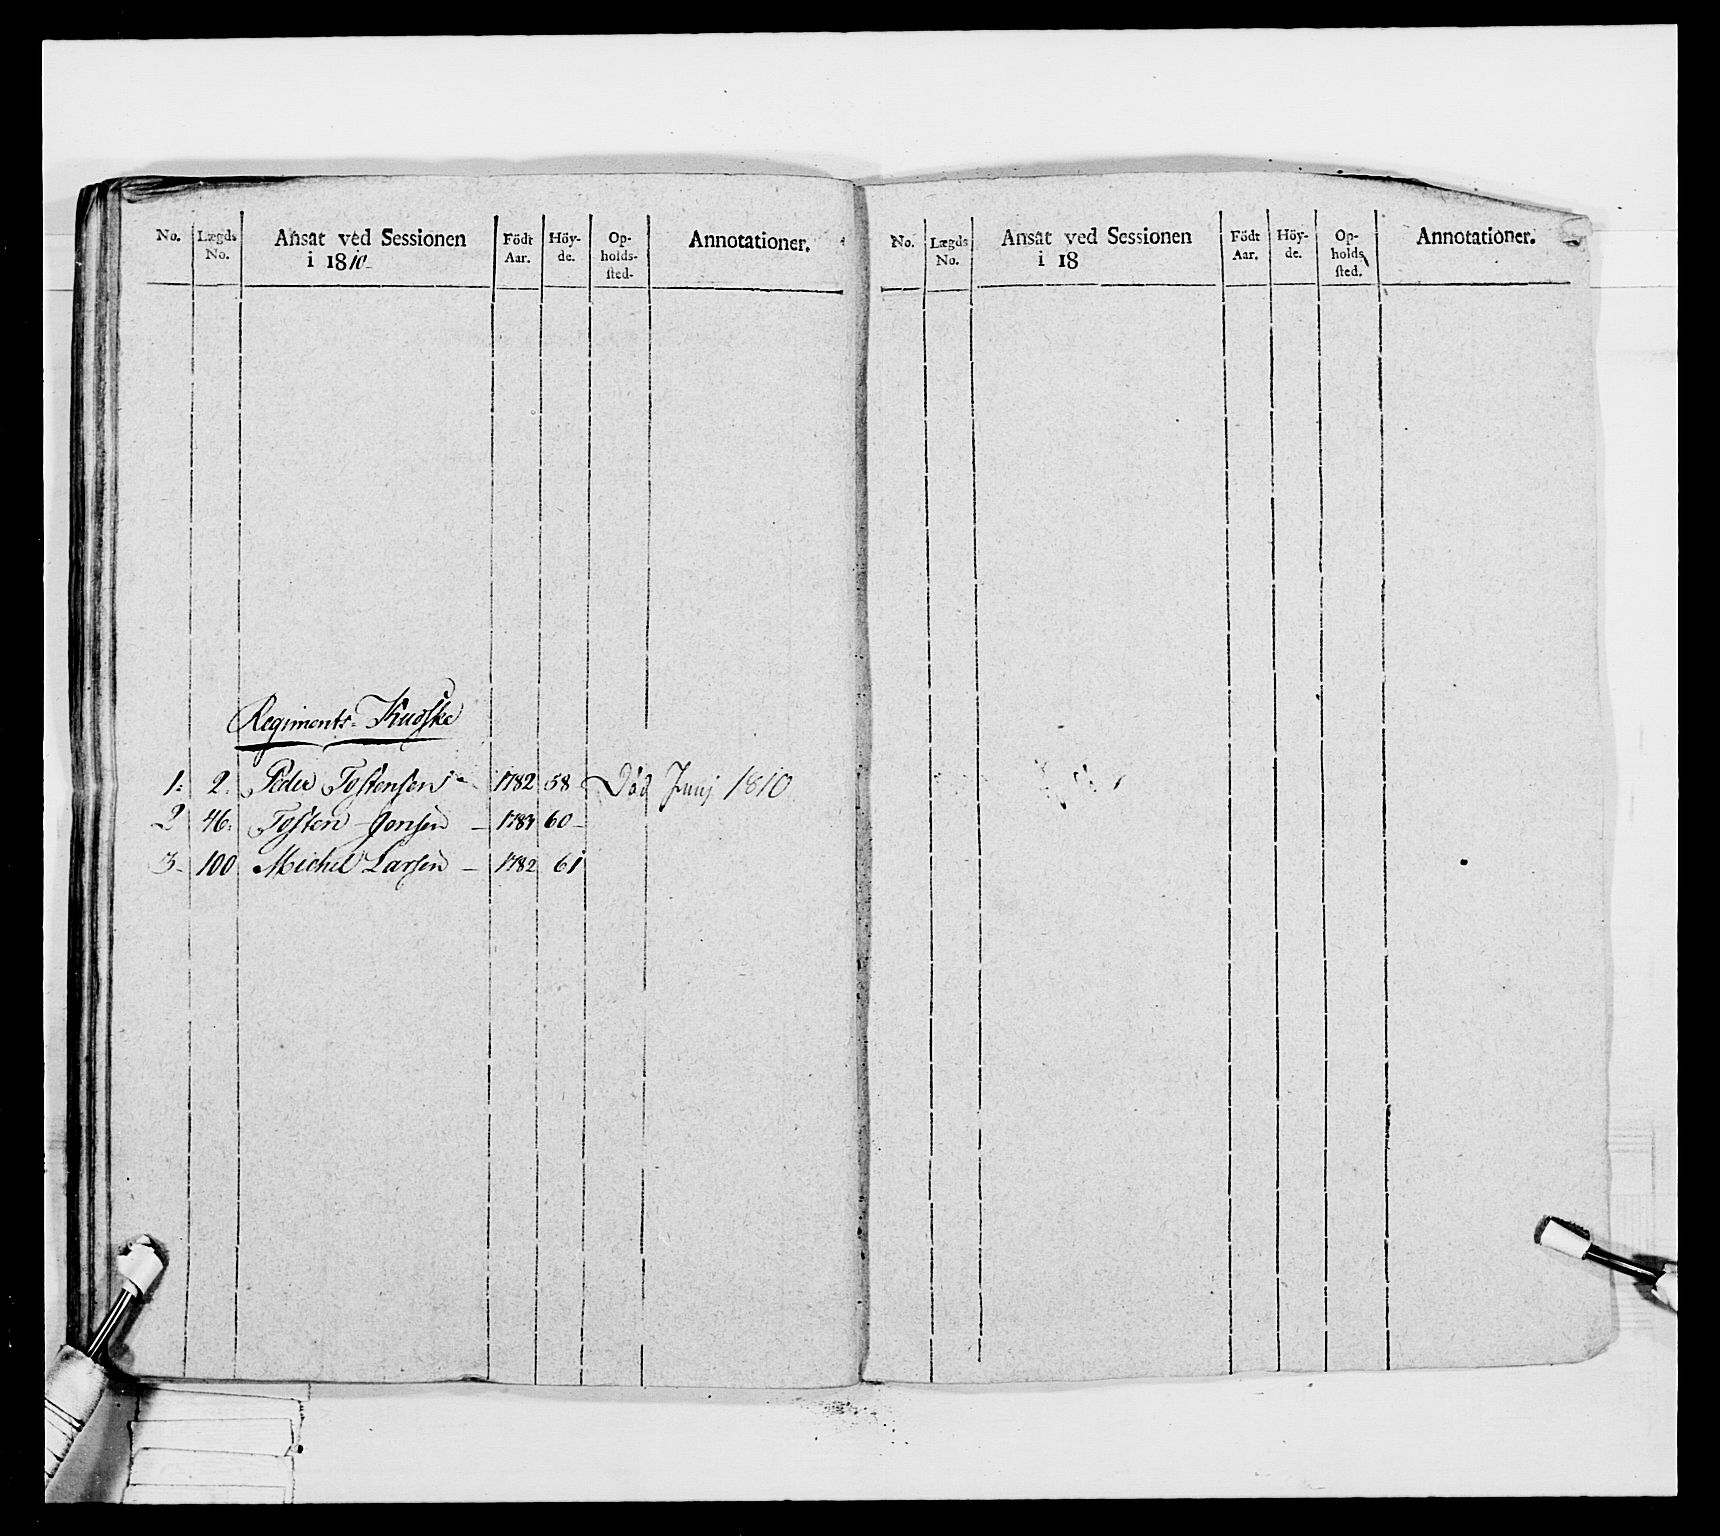 No. Lægds No. Ansat ved Sessionen i 1810 Födt Aar. Höyde. Opholdssted. Annotationer.
Regiments-Kudske
1. 2. Peder Tostensen 1782 58 Död Junij 1810
2 46. Tosten Jonsen – 60 –
3 – 100 Michel Larsen – 1782 61
No. Lægds No. Ansat ved Sessionen i 18 Födt Aar. Höyde. Opholdssted. Annotationer.